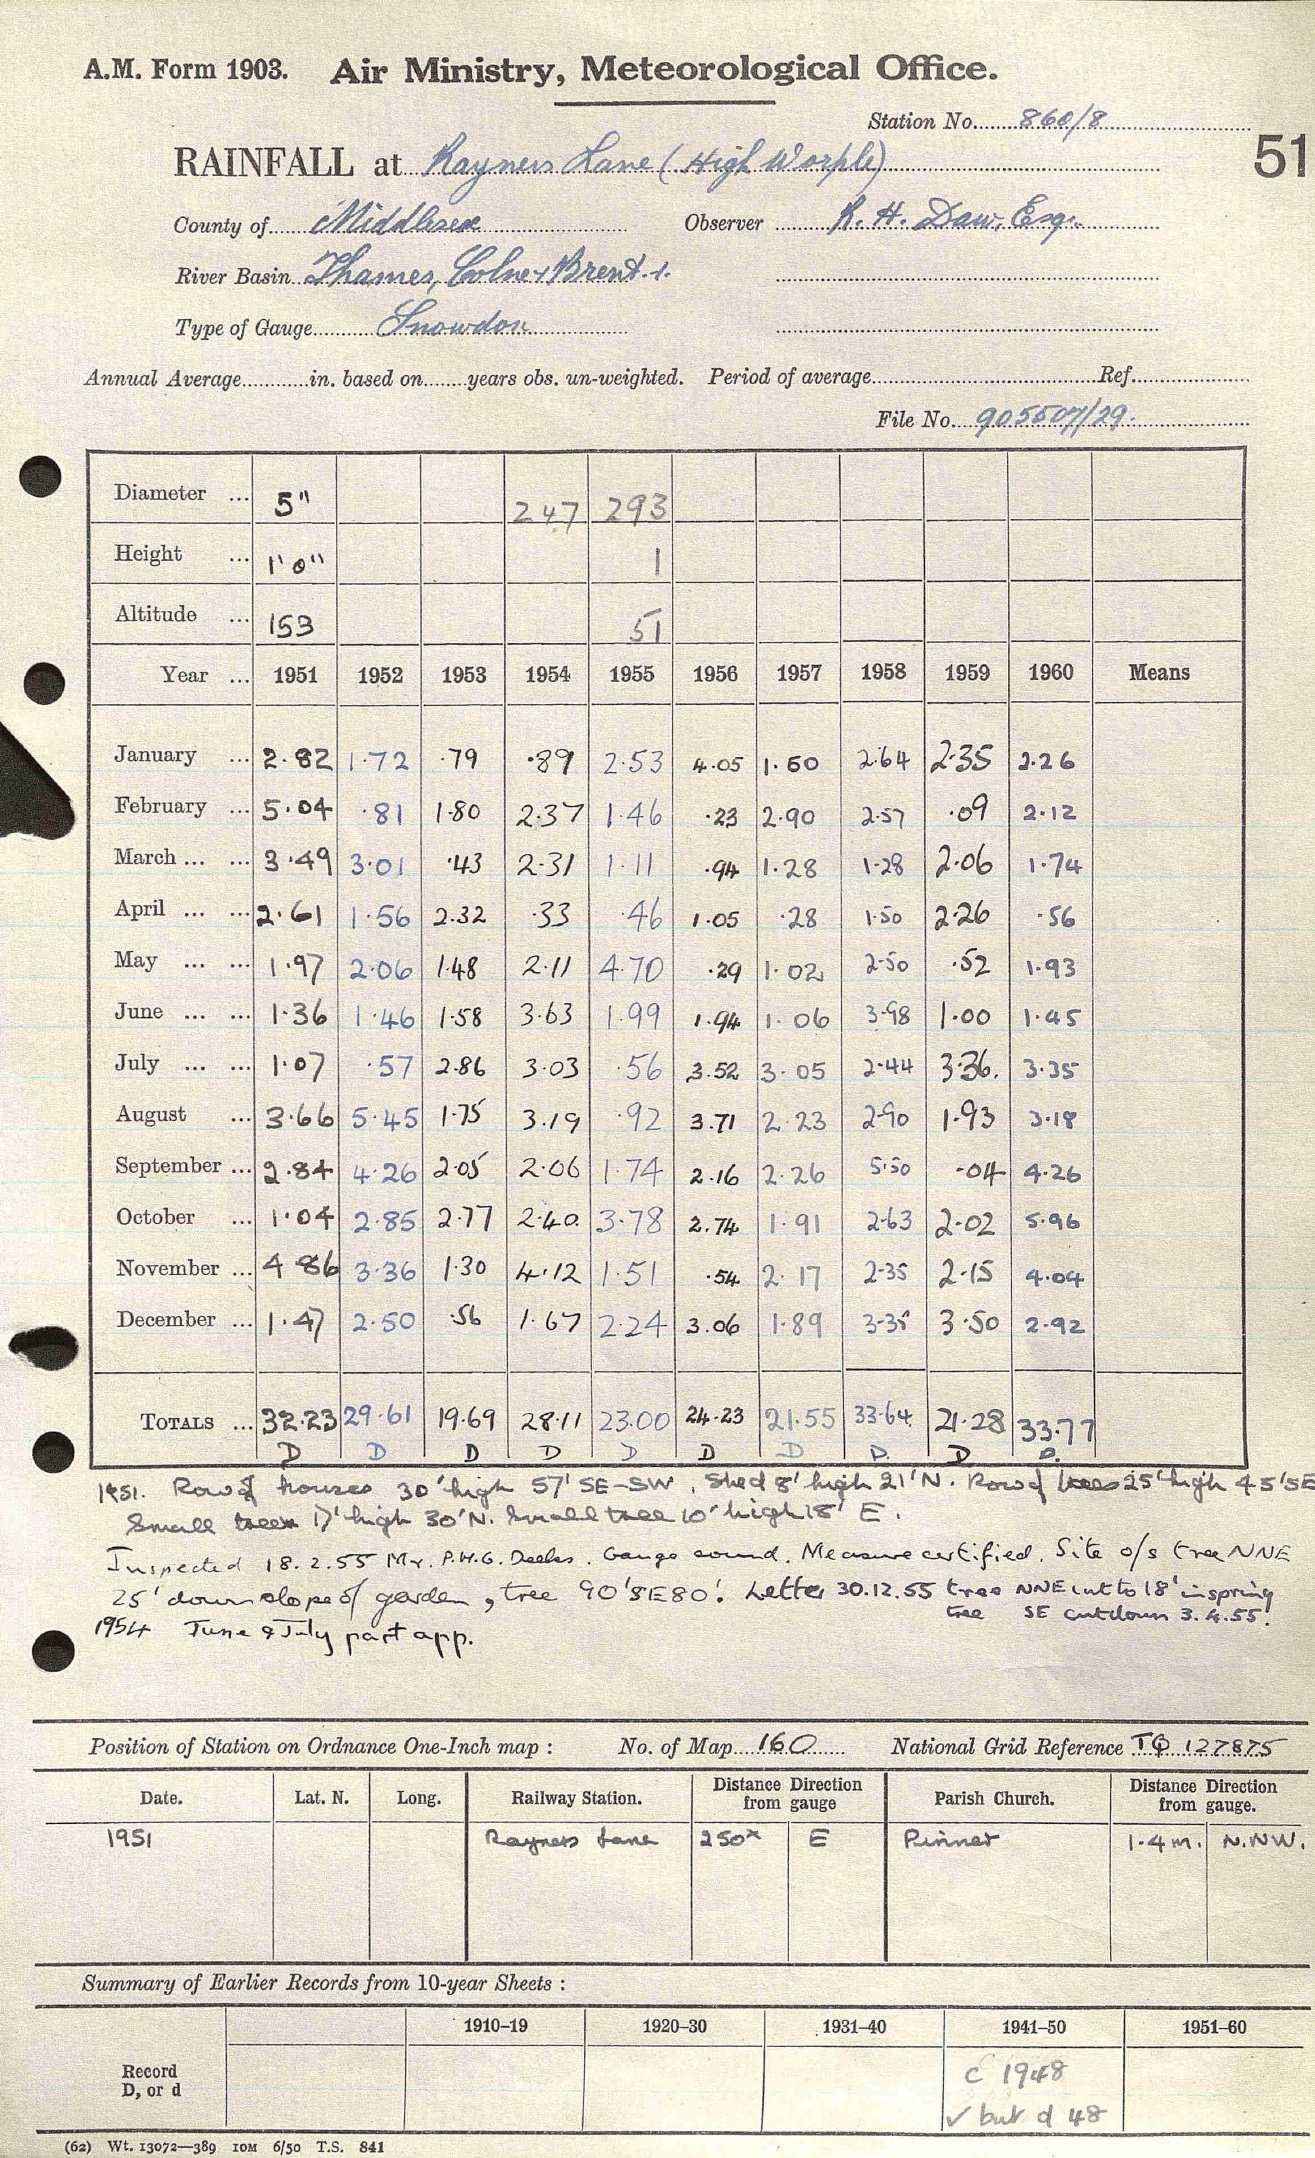 A.M. Form 1903. Air Ministry, Meteorological Office.
Station No. 860/8
RAINFALL at Rayners Lane (High Worple)
51
County of Middlesex Observer R. H. Daw, Esq.
River Basin Thames, Colne & Brent
Type of Gauge Snowdon
Annual Average in. based on years obs. un-weighted. Period of average Ref.
File No. 905507/29.
Diameter ... 5" 247 293
Height ... 1'0" 1
Altitude ... 153 51
Year ... 1951 1952 1953 1954 1955 1956 1957 1958 1959 1960 Means
January ... 2.82 1.72 .79 .89 2.53 4.05 1.50 2.64 2.35 2.26
February ... 5.04 .81 1.80 2.37 1.46 .23 2.90 2.57 .09 2.12
March ... ... 3.49 3.01 .43 2.31 1.11 .94 1.28 1.28 2.06 1.74
April ... ... 2.61 1.56 2.32 .33 .46 1.05 .28 1.50 2.26 .56
May ... ... 1.97 2.06 1.48 2.11 4.70 .29 1.02 2.50 .52 1.93
June ... ... 1.36 1.46 1.58 3.63 1.99 1.94 1.06 3.98 1.00 1.45
July ... ... 1.07 .57 2.86 3.03 .56 3.52 3.05 2.44 3.36. 3.35
August ... 3.66 5.45 1.75 3.19 .92 3.71 2.23 2.90 1.93 3.18
September ... 2.84 4.26 2.05 2.06 1.74 2.16 2.26 5.50 .04 4.26
October ... 1.04 2.85 2.77 2.40. 3.78 2.74 1.91 2.63 2.02 5.96
November ... 4 86 3.36 1.30 4.12 1.51 .54 2.17 2.35 2.15 4.04
December ... 1.47 2.50 .56 1.67 2.24 3.06 1.89 3.35 3.50 2.92
TOTALS ... 32.23 29.61 19.69 28.11 23.00 24.23 21.55 33.64 21.28 33.77
D D D D D D D D. D D.
1951. Row of houses 30' high 57' SE-SW, Shed 8' high 21' N. Row of trees 25' high 45' SE
Small tree 17' high 30' N. Small tree 10' high 18' E.
Inspected 18.2.55 Mr. P.H.G. Deeks. Gauge sound. Measure certified. Site o/s tree NNE
25' down slope of garden, tree 90' SE 80'. Letter 30.12.55 tree NNE cut to 18' in spring
tree SE cut down 3.4.55.
1954 June & July part app.
Position of Station on Ordnance One-Inch map : No. of Map 160 National Grid Reference TQ 127875
Date. Lat. N. Long. Railway Station. Distance Direction from gauge Parish Church. Distance Direction from gauge.
1951 Rayners Lane 250x E Pinner 1.4 m. N.NW.
Summary of Earlier Records from 10-year Sheets :
1910–19 1920–30 1931–40 1941–50 1951–60
Record
D, or d
c 1948
✓ but d 48
(62) Wt. 13072—389 10M 6/50 T.S. 841